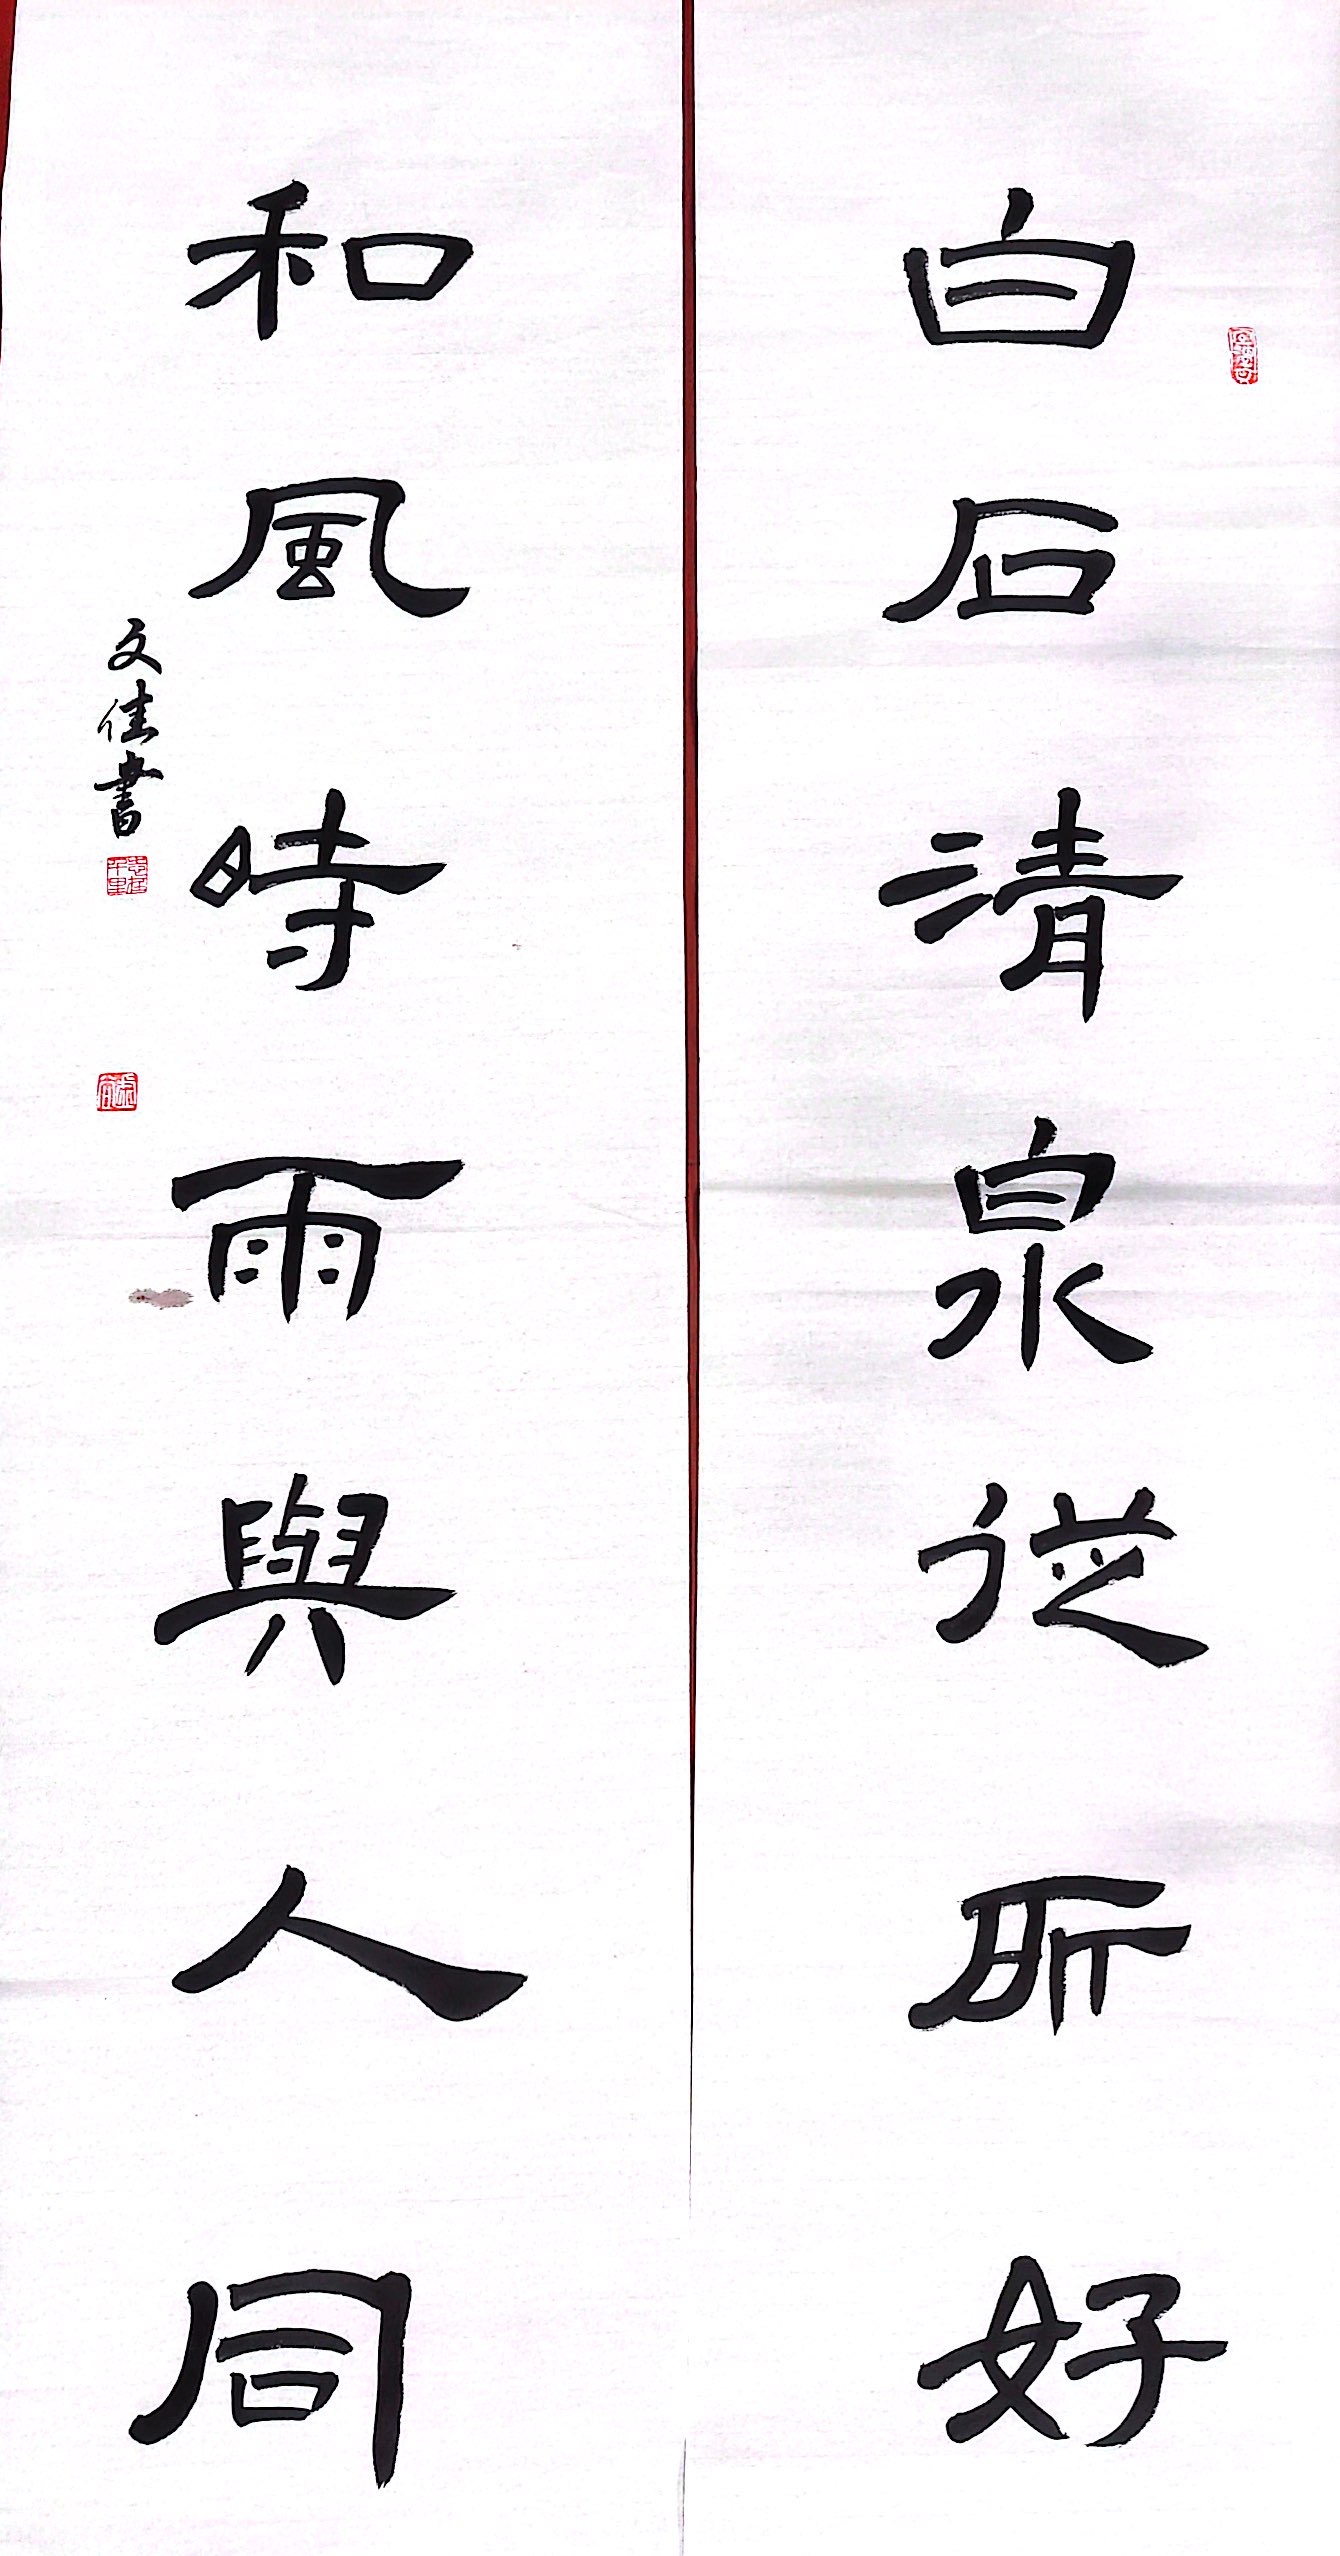 白石清泉從所好
和風時雨與人同
文佳書